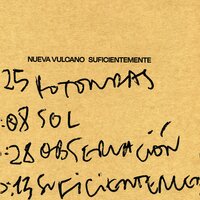 NUEVA VULCANO SUFICIENTEMENTE
:25 ROTONDAS
:08 SOL
:28 OBSERVACIÓN
:13 SUFICIENTEMEN